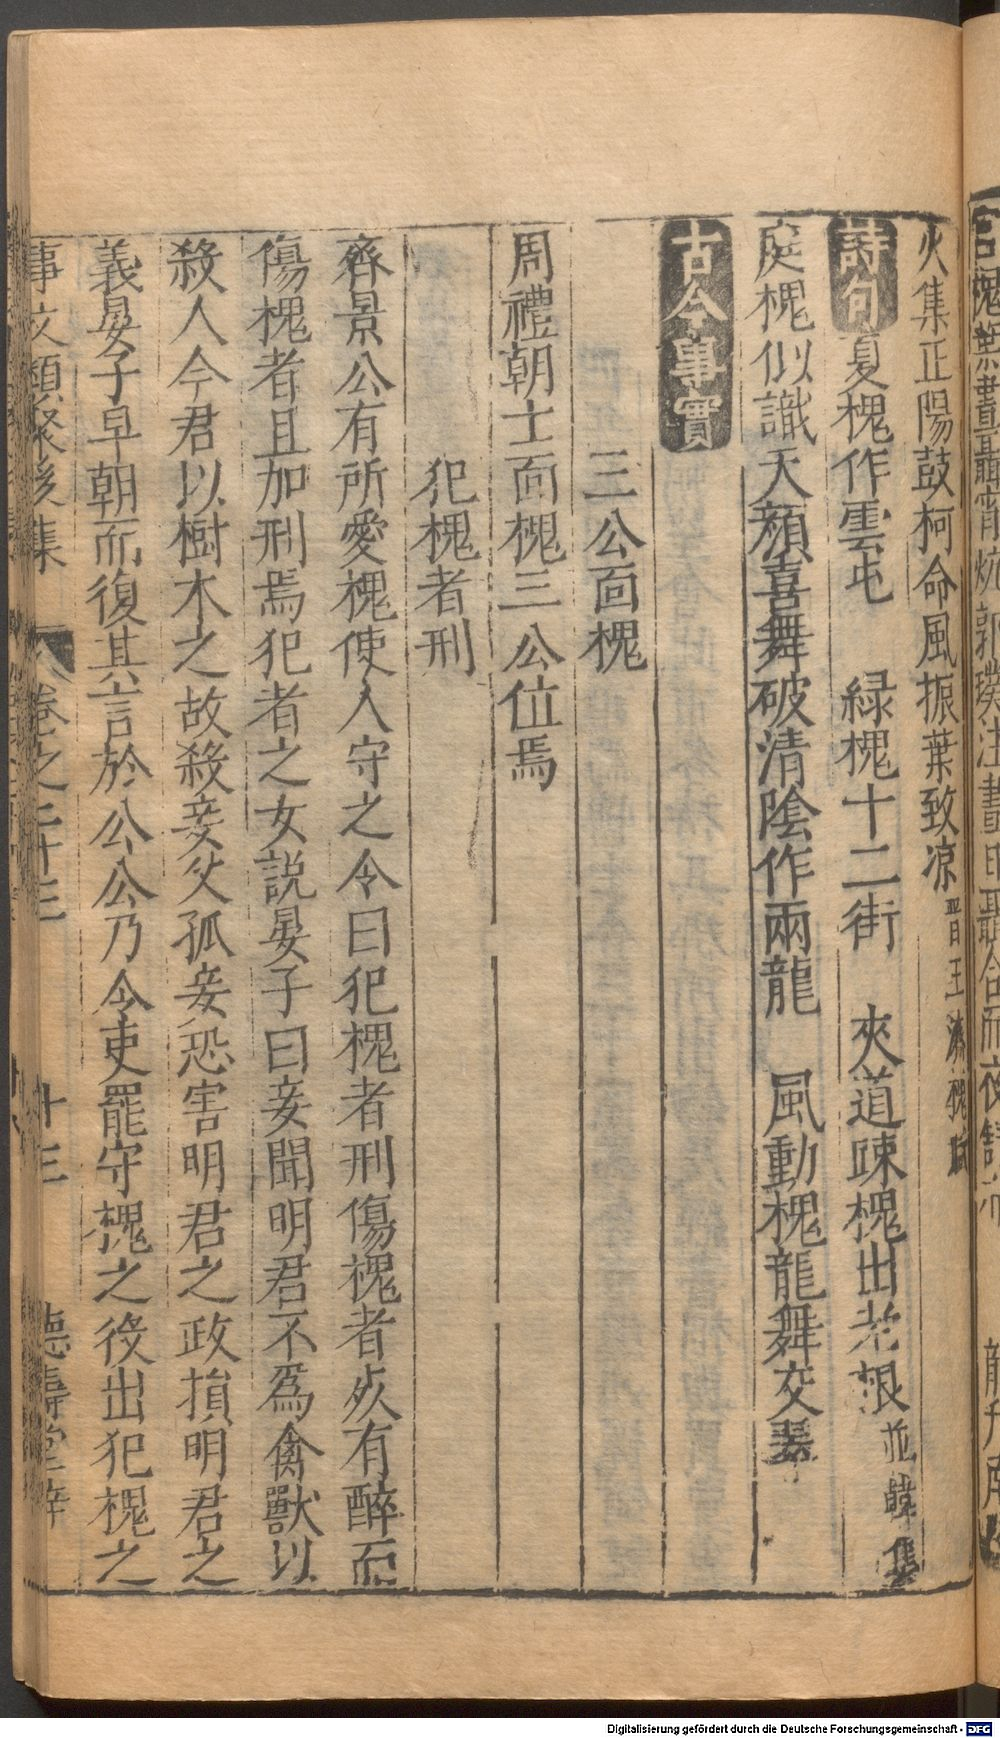 火集正陽鼓柯命風振葉致凉 晋王濟槐賦
詩句 夏槐作雲屯 緑槐十二街 夾道踈槐出老根 並韓集
庭槐似識天顔喜舞破清陰作兩龍 風動槐龍舞交翠
古今事實
三公面槐
周禮朝士面槐三公位焉
犯槐者刑
齊景公有所愛槐使人守之令曰犯槐者刑傷槐者死有醉而
傷槐者且加刑焉犯者之女説晏子曰妾聞明君不爲禽獸以
殺人今君以樹木之故殺妾父孤妾恐害明君之政損明君之
義晏子早朝而復其言於公公乃令吏罷守槐之役出犯槐之
事文類聚後集 卷之二十三 十三 德壽堂梓
Digitalisierung gefördert durch die Deutsche Forschungsgemeinschaft - DFG